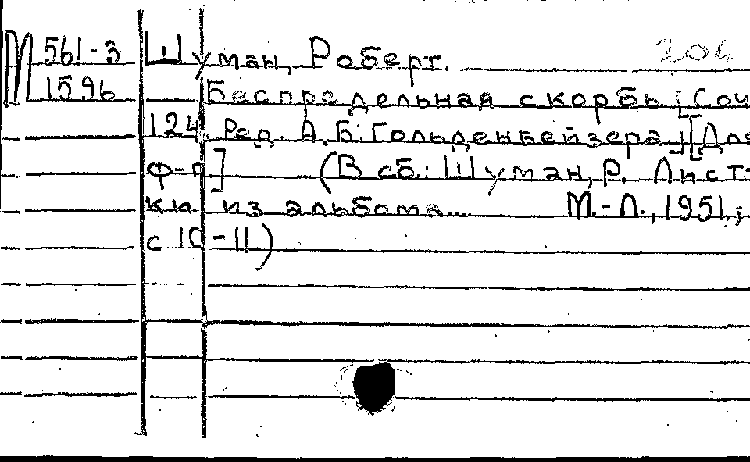 М 561-3 Шуман, Роберт. 206
1596 Беспредельная скорбь [Соч.
124 Ред. А.Б. Гольденвейзера] [Для
ф-п] (В сб.: Шуман, Р. Лист-
ки из альбома... М.-Л., 1951,
с 10-11)